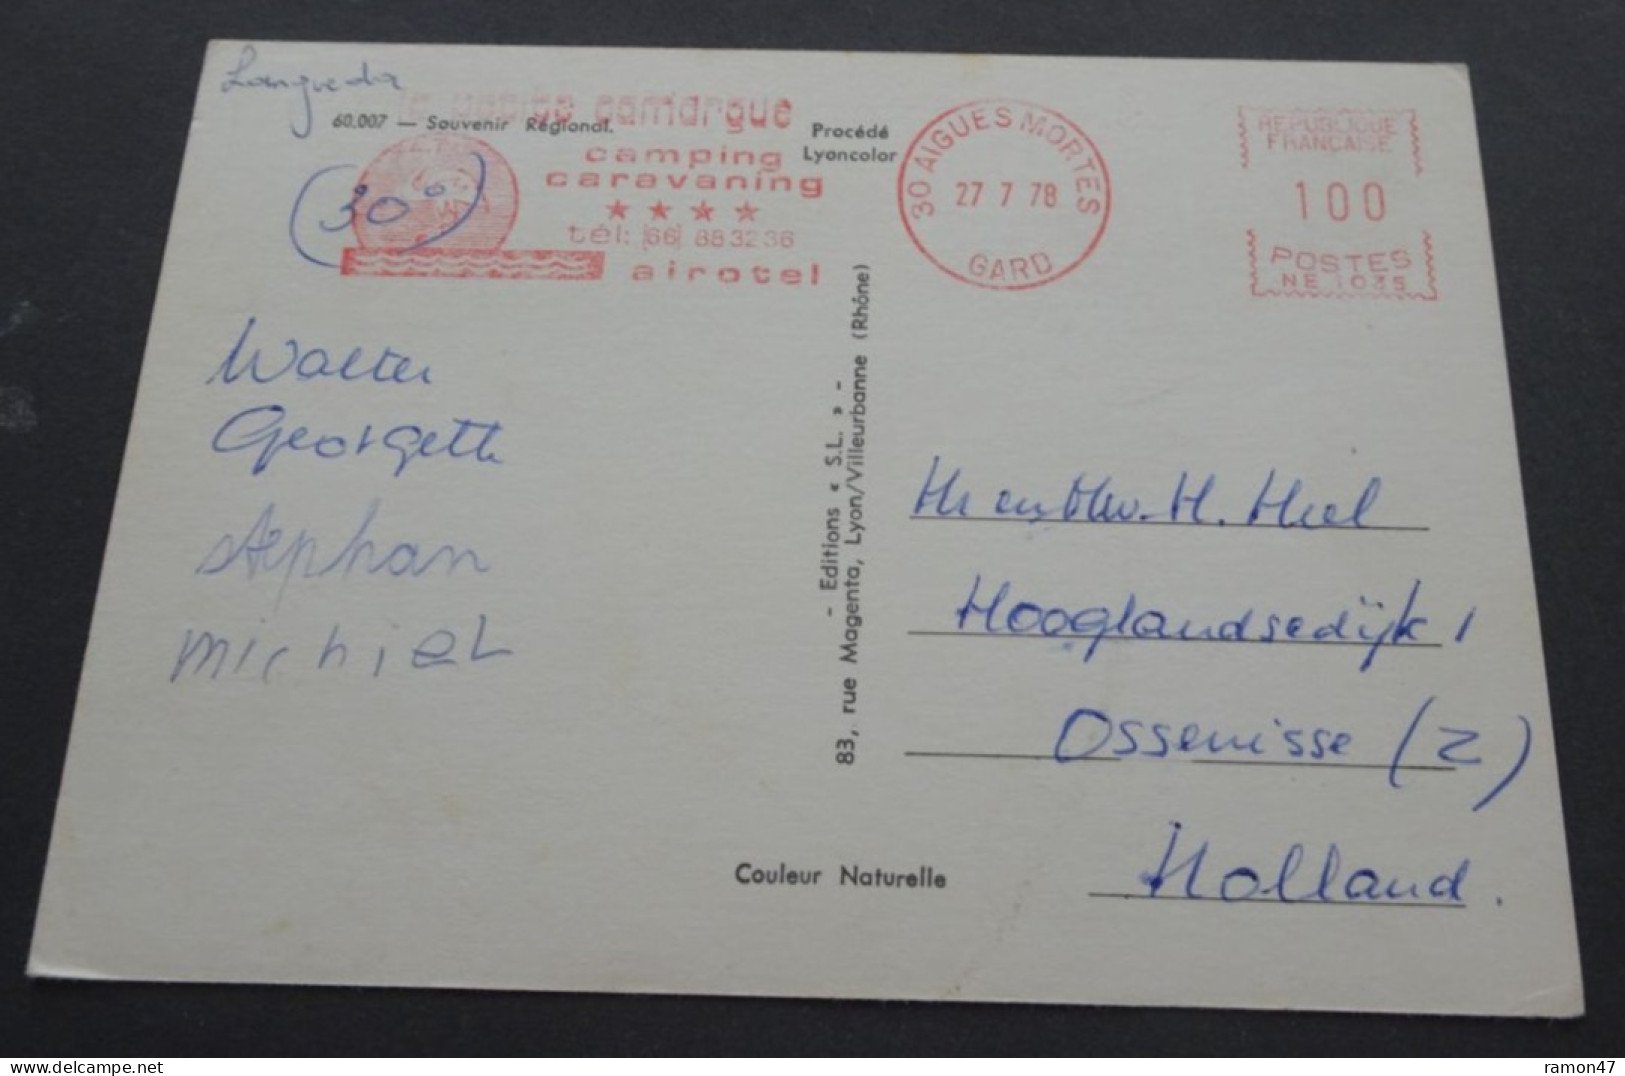 Langueda
la petite camargue
60.007 — Souvenir Régional.
Procédé
Lyoncolor
camping
caravaning
★ ★ ★ ★
tél: (66) 883236
airotel
(30°)
30 AIGUES MORTES
27 7 78
GARD
REPUBLIQUE
FRANCAISE
100
POSTES
NE 1035
Walter
Georgette
stephan
michiel
- Editions « S.L. » -
83, rue Magenta, Lyon/Villeurbanne (Rhône)
Hr en Mw. H. Hiel
Hooglandsedijk 1
Ossenisse (Z)
Holland.
Couleur Naturelle
ramon47